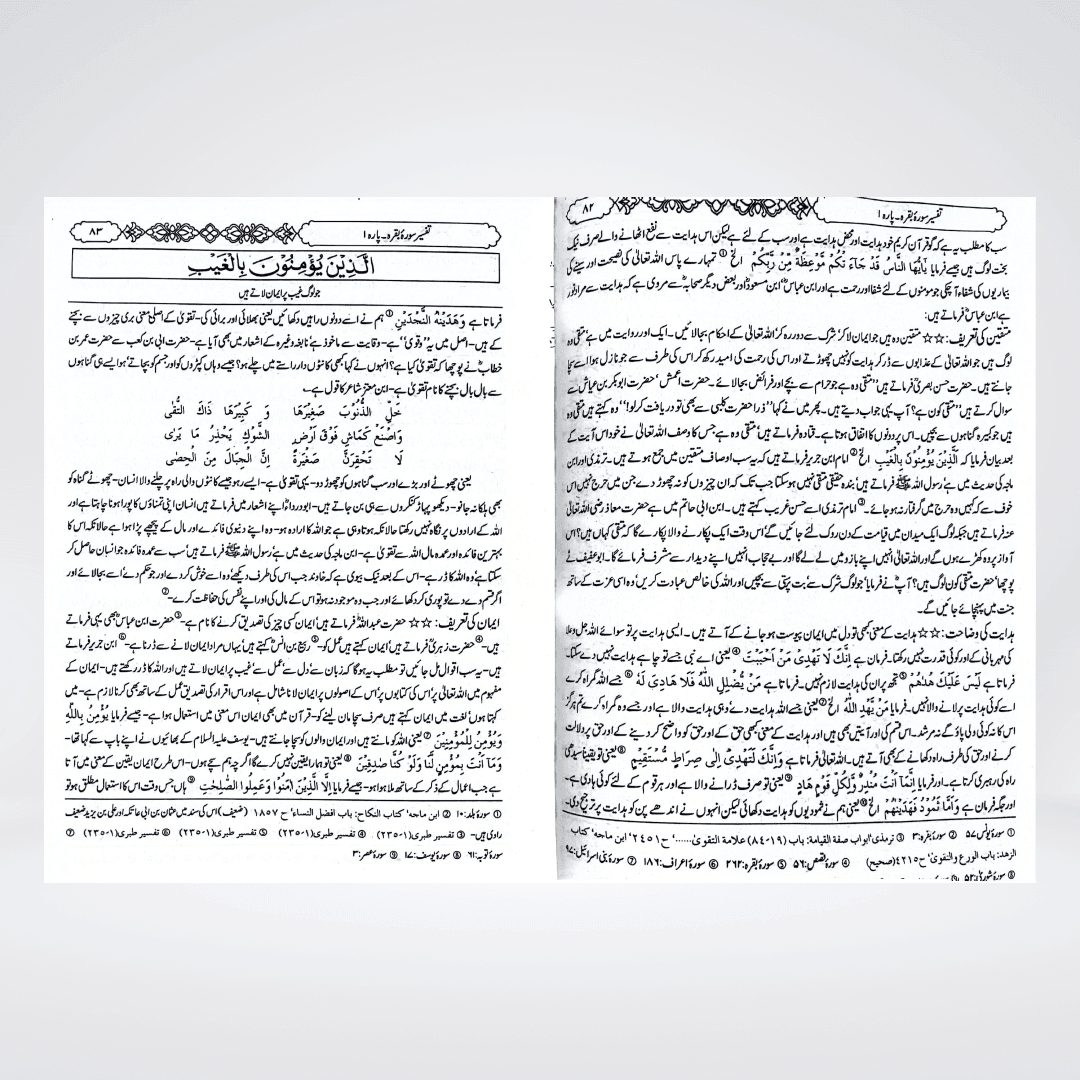 تفسیر سورۂ بقرہ۔ پارہ ۱
۸۲
سب کا مطلب یہ ہے کہ گو قرآن کریم خود ہدایت اور محض ہدایت ہے اور سب کے لئے ہے لیکن اس ہدایت سے نفع اٹھانے والے صرف نیک
بخت لوگ ہیں جیسے فرمایا یٰۤاَیُّهَا النَّاسُ قَدْ جَآءَ تْكُمْ مَّوْعِظَةٌ مِّنْ رَّبِّكُمْ الخ ① تمہارے پاس اللہ تعالیٰ کی نصیحت اور سینے کی
بیماریوں کی شفاء آ چکی جو مومنوں کے لئے شفا اور رحمت ہے اور ابن عباسؓ‘ ابن مسعودؓ اور بعض دیگر صحابہؓ سے مروی ہے کہ ہدایت سے مراد نور
ہے ابن عباسؓ فرماتے ہیں:
متقین کی تعریف: ☆☆ متقین وہ ہیں جو ایمان لا کر شرک سے دور رہ کر اللہ تعالیٰ کے احکام بجا لائیں۔ ایک اور روایت میں ہے متقی وہ
لوگ ہیں جو اللہ تعالیٰ کے عذابوں سے ڈر کر ہدایت کو نہیں چھوڑتے اور اس کی رحمت کی امید رکھ کر اس کی طرف سے جو نازل ہوا اسے سچا
جانتے ہیں۔ حضرت حسن بصریؒ فرماتے ہیں ’’متقی وہ ہے جو حرام سے بچے اور فرائض بجا لائے۔ حضرت اعمشؒ‘ حضرت ابوبکر بن عیاشؒ سے
سوال کرتے ہیں ’’متقی کون ہے؟ آپ یہی جواب دیتے ہیں۔ پھر میں نے کہا ’’ذرا حضرت کلبی سے بھی تو دریافت کر لو!‘‘ وہ کہتے ہیں متقی وہ
ہیں جو کبیرہ گناہوں سے بچیں۔ اس پر دونوں کا اتفاق ہوتا ہے۔ قتادہؒ فرماتے ہیں‘ متقی وہ ہے جس کا وصف اللہ تعالیٰ نے خود اس آیت کے
بعد بیان فرمایا کہ الَّذِيْنَ يُؤْمِنُوْنَ بِالْغَيْبِ الخ ② امام ابن جریرؒ فرماتے ہیں کہ یہ سب اوصاف متقین میں جمع ہوتے ہیں۔ ترمذی اور ابن
ماجہ کی حدیث میں ہے‘ رسول اللہ ﷺ فرماتے ہیں‘ بندہ حقیقی متقی نہیں ہو سکتا جب تک کہ ان چیزوں کو نہ چھوڑ دے جن میں حرج نہیں اس
خوف سے کہ کہیں وہ حرج میں گرفتار نہ ہو جائے۔ ③ امام ترمذی اسے حسن غریب کہتے ہیں۔ ابن ابی حاتم میں ہے حضرت معاذ رضی اللہ تعالیٰ
عنہ فرماتے ہیں جبکہ لوگ ایک میدان میں قیامت کے دن روک لئے جائیں گے‘ اس وقت ایک پکارنے والا پکارے گا کہ متقی کہاں ہیں؟ اس
آواز پر وہ کھڑے ہوں گے اور اللہ تعالیٰ انہیں اپنے بازو میں لے لے گا اور بے حجاب انہیں اپنے دیدار سے مشرف فرمائے گا۔ ابو عفیفؒ نے
پوچھا‘ حضرت متقی کون لوگ ہیں؟ آپؓ نے فرمایا ’جو لوگ شرک سے بت پرستی سے بچیں اور اللہ کی خالص عبادت کریں‘ وہ اسی عزت کے ساتھ
جنت میں پہنچائے جائیں گے۔
ہدایت کی وضاحت: ☆☆ ہدایت کے معنی کبھی تو دل میں ایمان پیوست ہو جانے کے آتے ہیں۔ ایسی ہدایت پر تو سوائے اللہ جل و علا
کی مہربانی کے اور کوئی قدرت نہیں رکھتا۔ فرمان ہے اِنَّكَ لَا تَهْدِىْ مَنْ اَحْبَبْتَ ④ یعنی اے نبی جسے تو چاہے ہدایت نہیں دے سکتا۔
فرماتا ہے لَيْسَ عَلَيْكَ هُدٰهُمْ ⑤ تجھ پر ان کی ہدایت لازم نہیں۔ فرماتا ہے مَنْ يُّضْلِلِ اللّٰهُ فَلَا هَادِىَ لَهٗ ⑥ جسے اللہ گمراہ کرے
اسے کوئی ہدایت پر لانے والا نہیں۔ فرمایا مَنْ يَّهْدِ اللّٰهُ الخ ⑦ یعنی جسے اللہ ہدایت دے وہی ہدایت والا ہے اور جسے وہ گمراہ کرے تم ہرگز
اس کا نہ کوئی ولی پاؤ گے نہ مرشد۔ اس قسم کی اور آیتیں بھی ہیں اور ہدایت کے معنی کبھی حق کے اور حق کو واضح کر دینے کے اور حق پر دلالت
کرنے اور حق کی طرف راہ دکھانے کے بھی آتے ہیں۔ اللہ تعالیٰ فرماتا ہے وَاِنَّكَ لَتَهْدِىْ اِلٰى صِرَاطٍ مُّسْتَقِيْمٍ ⑧ یعنی تو یقیناً سیدھی
راہ کی رہبری کرتا ہے۔ اور فرمایا اِنَّمَا اَنْتَ مُنْذِرٌ وَّلِكُلِّ قَوْمٍ هَادٍ ⑨ یعنی تو صرف ڈرانے والا ہے اور ہر قوم کے لئے کوئی ہادی ہے۔
اور جگہ فرمان ہے وَاَمَّا ثَمُوْدُ فَهَدَيْنٰهُمْ الخ یعنی ہم نے ثمودیوں کو ہدایت دکھائی لیکن انہوں نے اندھے پن کو ہدایت پر ترجیح دی۔
① سورۂ یونس: ۵۷ ② سورۂ بقرہ: ۳ ③ ترمذی‘ ابواب صفة القیامة: باب (۱۹-۸۴) علامة التقوی......‘ ح ۲۴۵۱‘ ابن ماجه‘ کتاب
الزهد: باب الورع والتقویٰ‘ ح ۴۲۱۵ (صحیح) ④ سورۂ قصص: ۵۶ ⑤ سورۂ بقرہ: ۲۷۲ ⑥ سورۂ اعراف: ۱۸۶ ⑦ سورۂ بنی اسرائیل: ۹۷
⑧ سورۂ شوریٰ: ۵۲
تفسیر سورۂ بقرہ۔ پارہ ۱
۸۳
الَّذِيْنَ يُؤْمِنُوْنَ بِالْغَيْبِ
جو لوگ غیب پر ایمان لاتے ہیں
فرماتا ہے وَهَدَيْنٰهُ النَّجْدَيْنِ ① ہم نے اسے دونوں راہیں دکھائیں یعنی بھلائی اور برائی کی۔ تقویٰ کے اصلی معنی بری چیزوں سے بچنے
کے ہیں۔ اصل میں یہ ’’وقویٰ‘‘ ہے۔ وقایت سے ماخوذ ہے‘ نابغہ وغیرہ کے اشعار میں بھی آیا ہے۔ حضرت ابی بن کعب سے حضرت عمر بن
خطابؓ نے پوچھا کہ تقویٰ کیا ہے؟ انہوں نے کہا‘ کبھی کانٹوں دار راستے میں چلے ہو؟ جیسے وہاں کپڑوں کو اور جسم کو بچاتے ہو‘ ایسے ہی گناہوں
سے بال بال بچنے کا نام تقویٰ ہے۔ ابن معتز شاعر کا قول ہے۔
خَلِّ الذُّنُوْبَ صَغِيْرَهَا وَ كَبِيْرَهَا ذَاكَ التُّقٰى
وَاصْنَعْ كَمَاشٍ فَوْقَ اَرْضِ الشَّوْكِ يَحْذَرُ مَا يَرٰى
لَا تَحْقِرَنَّ صَغِيْرَةً اِنَّ الْجِبَالَ مِنَ الْحِصٰى
یعنی چھوٹے اور بڑے اور سب گناہوں کو چھوڑ دو۔ یہی تقویٰ ہے۔ ایسے رہو جیسے کانٹوں والی راہ پر چلنے والا انسان۔ چھوٹے گناہ کو
بھی ہلکا نہ جانو۔ دیکھو پہاڑ کنکروں سے ہی بن جاتے ہیں۔ ابو درداؓ اپنے اشعار میں فرماتے ہیں‘ انسان اپنی تمناؤں کا پورا ہونا چاہتا ہے اور
اللہ کے ارادوں پر نگاہ نہیں رکھتا حالانکہ ہوتا وہی ہے جو اللہ کا ارادہ ہو۔ وہ اپنے دنیوی فائدے اور مال کے پیچھے پڑا ہوا ہے حالانکہ اس کا
بہترین فائدہ اور عمدہ مال اللہ سے تقویٰ ہے۔ ابن ماجہ کی حدیث میں ہے‘ رسول اللہ ﷺ فرماتے ہیں‘ سب سے عمدہ فائدہ جو انسان حاصل کر
سکتا ہے وہ اللہ کا ڈر ہے۔ اس کے بعد نیک بیوی ہے کہ خاوند جب اس کی طرف دیکھے‘ وہ اسے خوش کر دے اور جو حکم دے‘ اسے بجا لائے اور
اگر قسم دے دے تو پوری کر دکھائے اور جب وہ موجود نہ ہو تو اس کے مال کی اور اپنے نفس کی حفاظت کرے۔ ②
ایمان کی تعریف: ☆☆ حضرت عبداللہؓ فرماتے ہیں‘ ایمان کسی چیز کی تصدیق کرنے کا نام ہے۔ ③ حضرت ابن عباسؓ بھی یہی فرماتے
ہیں۔ ④ حضرت زہریؒ فرماتے ہیں‘ ایمان کہتے ہیں عمل کو۔ ⑤ ربیع بن انسؒ کہتے ہیں‘ یہاں مراد ایمان لانے سے ڈرنا ہے۔ ⑥ ابن جریرؒ فرماتے
ہیں۔ یہ سب اقوال مل جائیں تو مطلب یہ ہو گا کہ زبان سے‘ دل سے‘ عمل سے‘ غیب پر ایمان لاتے ہیں اور اللہ کا ڈر رکھتے ہیں۔ ایمان کے
مفہوم میں اللہ تعالیٰ پر‘ اس کی کتابوں پر‘ اس کے اصولوں پر ایمان لانا شامل ہے اور اس اقرار کی تصدیق عمل کے ساتھ بھی کرنا لازم ہے۔ میں
کہتا ہوں‘ لغت میں ایمان کہتے ہیں صرف سچا مان لینے کو۔ قرآن میں بھی ایمان اس معنی میں استعمال ہوا ہے۔ جیسے فرمایا يُؤْمِنُ بِاللّٰهِ
وَيُؤْمِنُ لِلْمُؤْمِنِيْنَ ⑦ یعنی اللہ کو مانتے ہیں اور ایمان والوں کو سچا جانتے ہیں۔ یوسف علیہ السلام کے بھائیوں نے اپنے باپ سے کہا تھا۔
وَمَآ اَنْتَ بِمُؤْمِنٍ لَّنَا وَلَوْ كُنَّا صٰدِقِيْنَ ⑧ یعنی تو ہمارا یقین نہیں کرے گا اگرچہ ہم سچے ہوں۔ اس طرح ایمان یقین کے معنی میں آتا
ہے جب اعمال کے ذکر کے ساتھ ملا ہوا ہو۔ جیسے فرمایا اِلَّا الَّذِيْنَ اٰمَنُوْا وَعَمِلُوا الصّٰلِحٰتِ ⑨ ہاں جس وقت اس کا استعمال مطلق ہو تو
① سورۂ بلد: ۱۰ ② ابن ماجه‘ کتاب النکاح: باب افضل النساء‘ ح ۱۸۵۷ (ضعیف) اس کی سند میں عثمان بن ابی عاتکہ اور علی بن یزید ضعیف
راوی ہیں۔ ③ تفسیر طبری (۱-۲۳۵) ④ تفسیر طبری (۱-۲۳۵) ⑤ تفسیر طبری (۱-۲۳۵) ⑥ تفسیر طبری (۱-۲۳۵) ⑦
سورۂ توبہ: ۶۱ ⑧ سورۂ یوسف: ۱۷ ⑨ سورۂ عصر: ۳